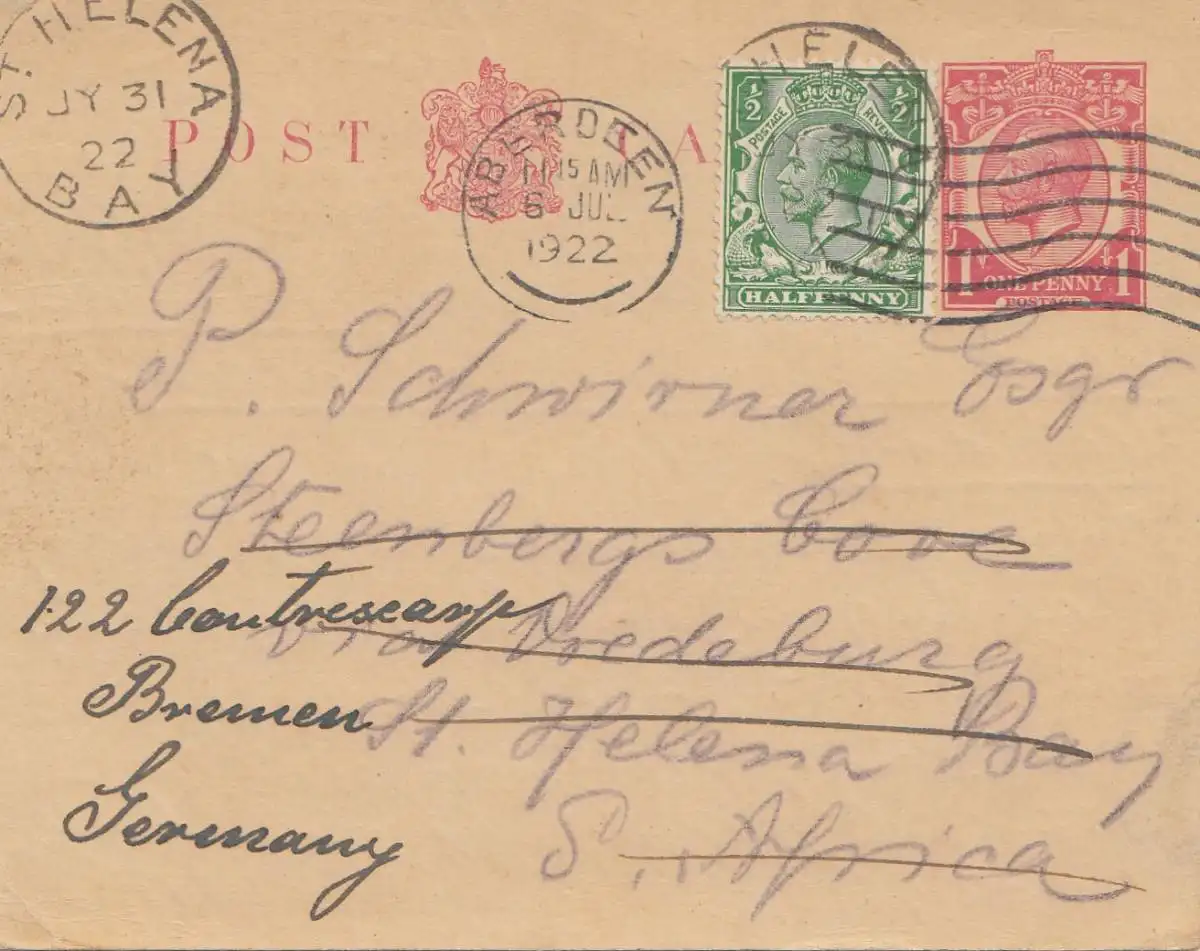 ST HELENA BAY
JY 31
22
POST CA
ABERDEEN
11 15 AM
6 JUL
1922
HELENA
½ ½
POSTAGE REVENUE
HALFPENNY
1 1
ONE PENNY
POSTAGE
P. Schwirner Esqr
Steenbergs Cove
via Vredeburg
St. Helena Bay
S. Africa
122 Contrescarp
Bremen
Germany